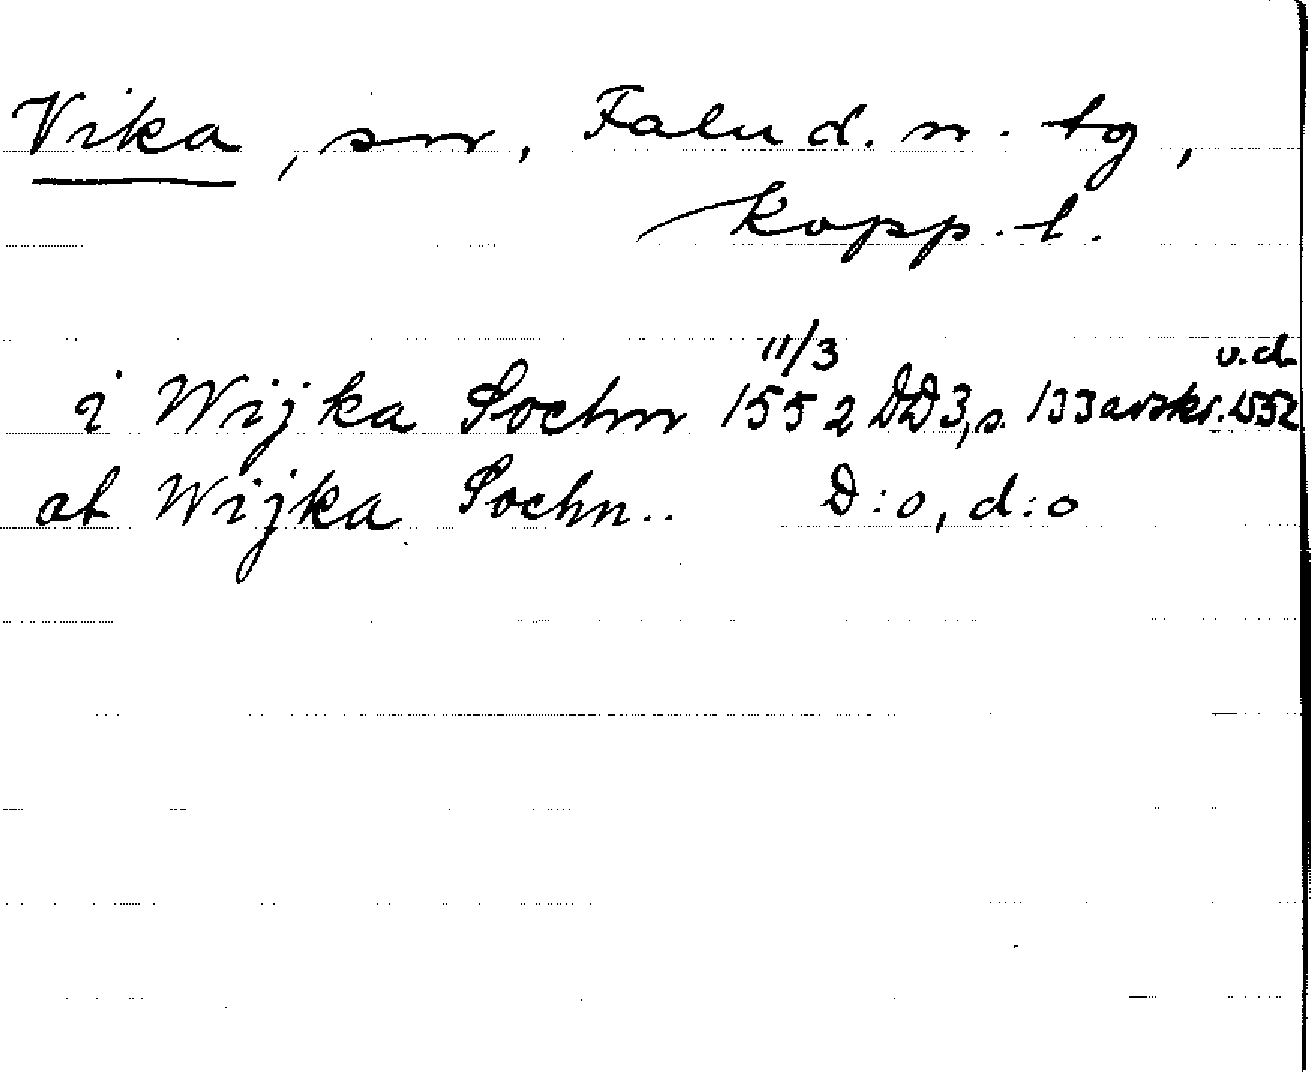 Vika, sn, Falu d. n. tg,
Kopp. l.
i Wijka Sochn 11/3 1552 DD3, s. 133 avskr. u.d. 1552
at Wijka Sochn.. D:o, d:o